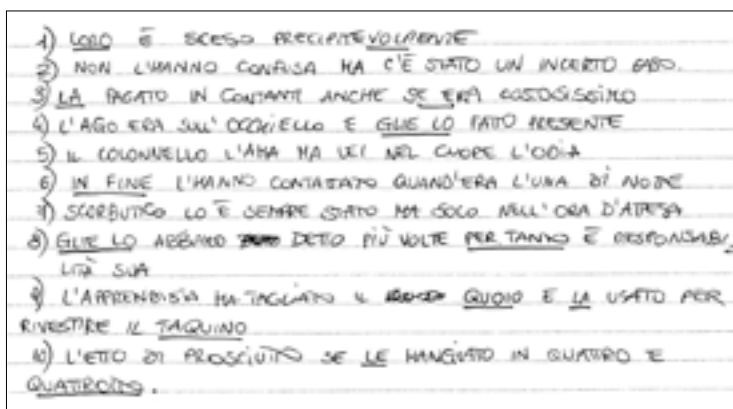 1) LORO È SCESO PRECIPITEVOLMENTE
2) NON L'HANNO CONFUSA MA C'È STATO UN INCERTO
3) LA PAGATO IN CONTANTI ANCHE SE ERA COSTOSISSIMO
4) L'AGO ERA SULL'OCCHIELLO E GLIE LO FATO PRESENTE
5) IL COLONNELLO L'AMA MA LEI NEL CUORE L'ODIA
6) IN FINE L'HANNO CONTATATO QUAND'ERA L'UNA DI NOTTE
7) SCORBUTICO LO È SEMPRE STATO MA SOLO NELL'ORA D'ATTESA
8) GLIE LO ABBIAMO DETTO PIÙ VOLTE PER TANTO È RESPONSABI
LITÀ SUA
9) L'APPRENDISTA HA TAGLIATO IL QUOIO E LA USATO PER
RIVESTIRE IL TAQUINO
10) L'ETTO DI PROSCIUTTO SE LE MANGIATO IN QUATTRO E
QUATTROTTO.